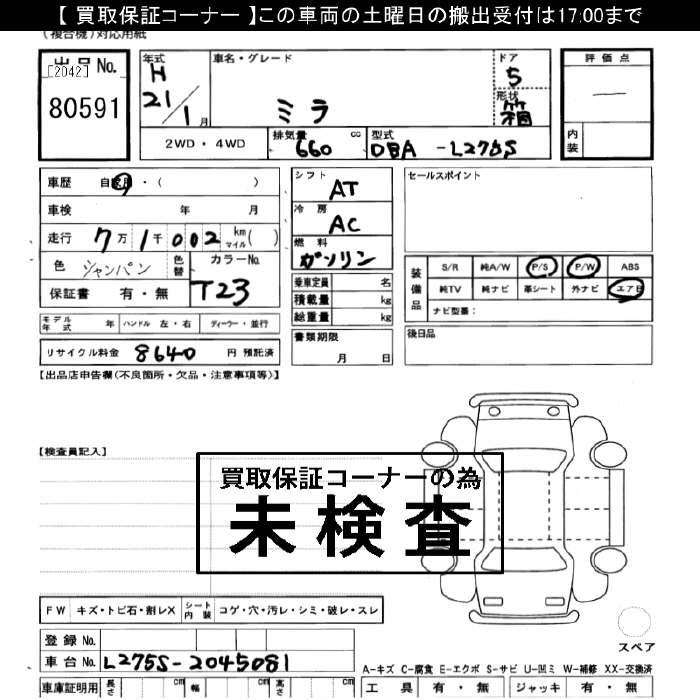 【 買取保証コーナー 】この車両の土曜日の搬出受付は17:00まで
(複合機)対応用紙
出品No.
[2042]
80591
年式
H
21/1月
車名・グレード
ミラ
ドア
5
形状
箱
評価点
内装
2WD・4WD
排気量 660 cc
型式 DBA -L275S
車歴 自家用・( )
車検 年 月
走行 7万1千002 km マイル( )
色 シャンパン 色替
カラーNo.
T23
保証書 有・無
シフト
AT
冷房
AC
燃料
ガソリン
乗車定員 名
積載量 kg
総重量 kg
セールスポイント
装備品
S/R 純A/W P/S P/W ABS
純TV 純ナビ 革シート 外ナビ エアB
ナビ型番:
モデル年式 年 ハンドル 左・右 ディーラー・並行
リサイクル料金 8640 円 預託済
書類期限
月 日
後日品
【出品店申告欄(不良箇所・欠品・注意事項等)】
【検査員記入】
買取保証コーナーの為
未検査
FW キズ・トビ石・割レX シート内装 コゲ・穴・汚レ・シミ・破レ・スレ
登録No.
車台No. L275S-2045081
車庫証明用 長さ cm 幅 cm 高さ cm
スペア
A-キズ C-腐食 E-エクボ S-サビ U-凹ミ W-補修 XX-交換済
工具 有・無 ジャッキ 有・無